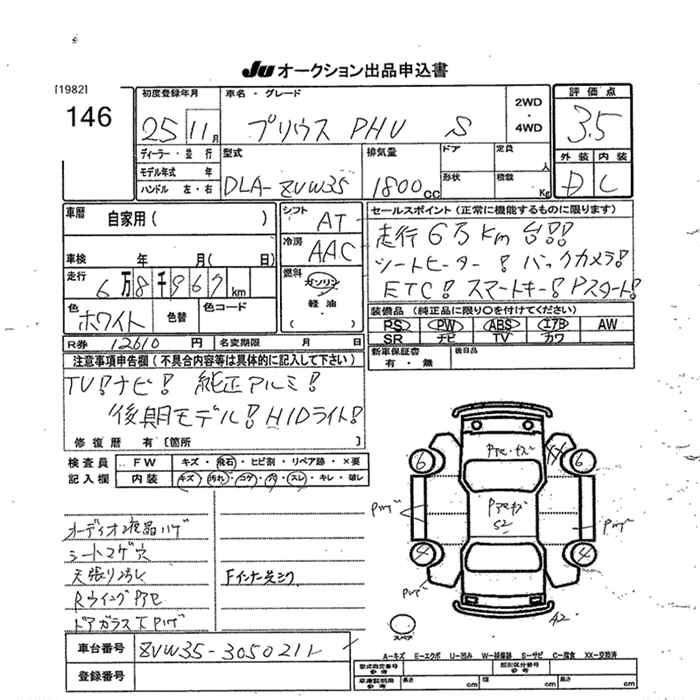 JU オークション出品申込書
[1982]
146
初度登録年月 車名・グレード 2WD・4WD 評価点
25 11月 プリウス PHV S 3.5
ディーラー・並行 型式 排気量 ドア 定員 人 外装 内装
モデル年式 年 形状 積載 Kg
ハンドル 左・右 DLA-ZVW35 1800cc D C
車歴 自家用( ) シフト AT セールスポイント(正常に機能するものに限ります)
冷房 AAC 走行6万Km台!!
車検 年 月( 日) シートヒーター! バックカメラ!
走行 6万8千967km 燃料 ガソリン ETC! スマートキー! Pスタート!
軽油
( )
色 ホワイト 色替 色コード 装備品(純正品に限り○を付けてください)
PS PW ABS エアB AW
R券 12610円 名変期限 月 日 SR ナビ TV カワ
注意事項申告欄(不具合内容等は具体的に記入して下さい) 新車保証書 有・無 後日品
TV!ナビ! 純正アルミ!
後期モデル! HIDライト!
修復歴 有〔箇所 〕
検査員 FW キズ・飛石・ヒビ割・リペア跡・×要
記入欄 内装 キズ・汚れ・コゲ・穴・スレ・キレ・破レ
オーディオ液晶ハゲ
シートコゲ穴
天張り汚れ
RウイングPアセ
ドアガラス
車台番号 ZVW35-3050211
登録番号
6
6
4
4
XX
S2
A2
スペア
A-キズ E-エクボ U-凹み W-補修跡 S-サビ C-腐食 XX-交換済
型式指定番号 参考 類別区分番号 参考
車庫証明用 参考 長さ cm 幅 cm 高さ cm